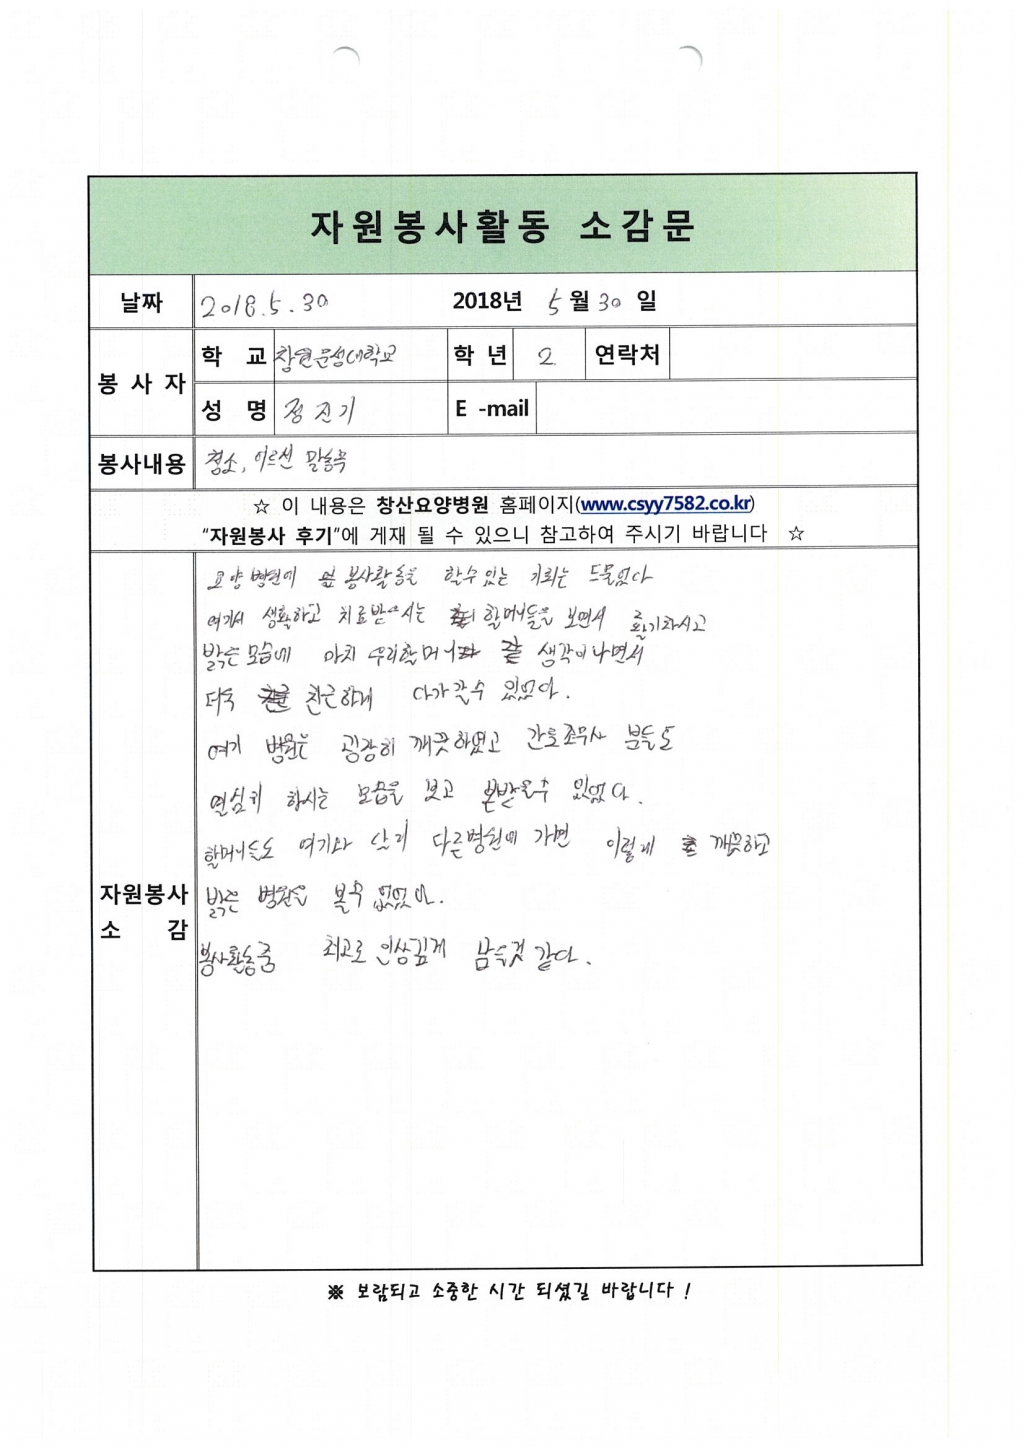 자원봉사활동 소감문
날짜 2018.5.30 2018년 5월 30일
봉사자 학 교 창원문성대학교 학 년 2 연락처
성 명 정진기 E -mail
봉사내용 청소, 어르신 말동무
☆ 이 내용은 창산요양병원 홈페이지(www.csyy7582.co.kr)
“자원봉사 후기”에 게재 될 수 있으니 참고하여 주시기 바랍니다 ☆
자원봉사
소 감
요양병원에 봉사활동을 할수있는 기회는 드물었다
여기서 생활하고 치료받으시는 할머니들을 보면서 활기차시고
밝은모습에 마치 우리할머니 같 생각이나면서
더욱 친근하게 다가갈수 있었다.
여기 병원은 굉장히 깨끗하였고 간호조무사 분들도
열심히 하시는 모습을 보고 본받을수 있었다.
할머니들도 여기와 달리 다른병원에 가면 이렇게 깨끗하고
밝은 병원을 볼수 없었다.
봉사활동중 최고로 인상깊게 남을것 같다.
※ 보람되고 소중한 시간 되셨길 바랍니다 !